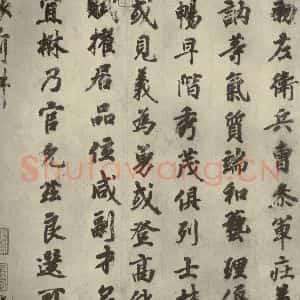 勅左衛兵曹叅軍莊
訥等氣質端和藝理優
暢早階秀茂俱列士林
或見義為勇或登高能
賦擢居品位咸副才名
宜楙乃官允茲良選可
Shufawang.CN